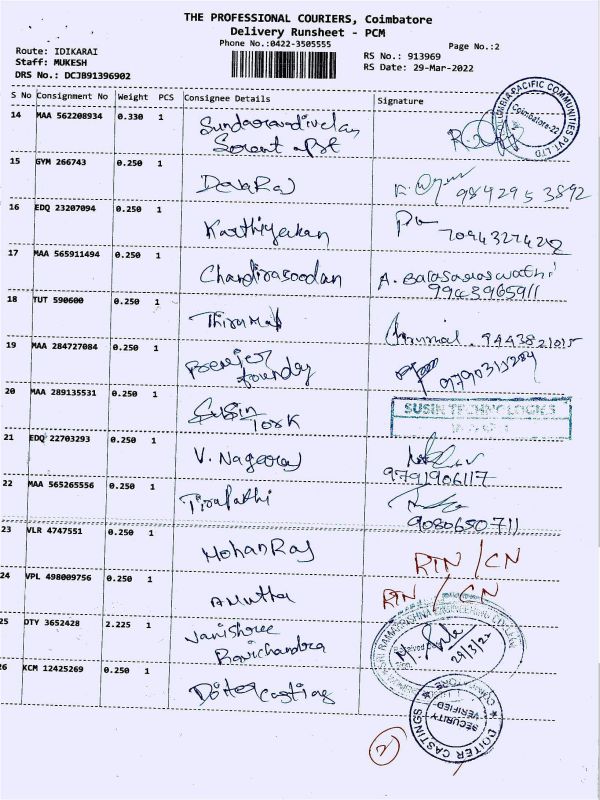 THE PROFESSIONAL COURIERS, Coimbatore
Delivery Runsheet - PCM
Phone No.:0422-3505555
Page No.:2
Route: IDIKARAI
Staff: MUKESH
DRS No.: DCJ891396902
RS No.: 913969
RS Date: 29-Mar-2022
S No Consignment No Weight PCS Consignee Details Signature
COLUMBIA PACIFIC COMMUNITIES PVT. LTD
Coimbatore-22
14 MAA 562208934 0.330 1
apt
15 GYM 266743 0.250 1 DevaRaj
98429 5 3892
16 EDQ 23207094 0.250 1 Karthiyekan
17 MAA 565911494 0.250 1 Chandirasoodan A. Balasaraswathi
9943965911
18 TUT 590600 0.250 1 Thirumal
9443821015
19 MAA 284727084 0.250 1 Premier
foundry
20 MAA 289135531 0.250 1 Susin
Tork
SUSIN TECHNOLOGIES
21 EDQ 22703293 0.250 1 V. Nagaraj
9791906117
22 MAA 565265556 0.250 1 Tirupathi
9080650711
23 VLR 4747551 0.250 1 MohanRaj RTN / CN
24 VPL 498009756 0.250 1 Amutha RTN / CN
25 DTY 3652428 2.225 1 Janishree
Ravichandra
SRI RAMAKRISHNA
29/3/22
26 KCM 12425269 0.250 1 Doiter Casting
DOITER CASTINGS
COIMBATORE
SECURITY
VERIFIED
2